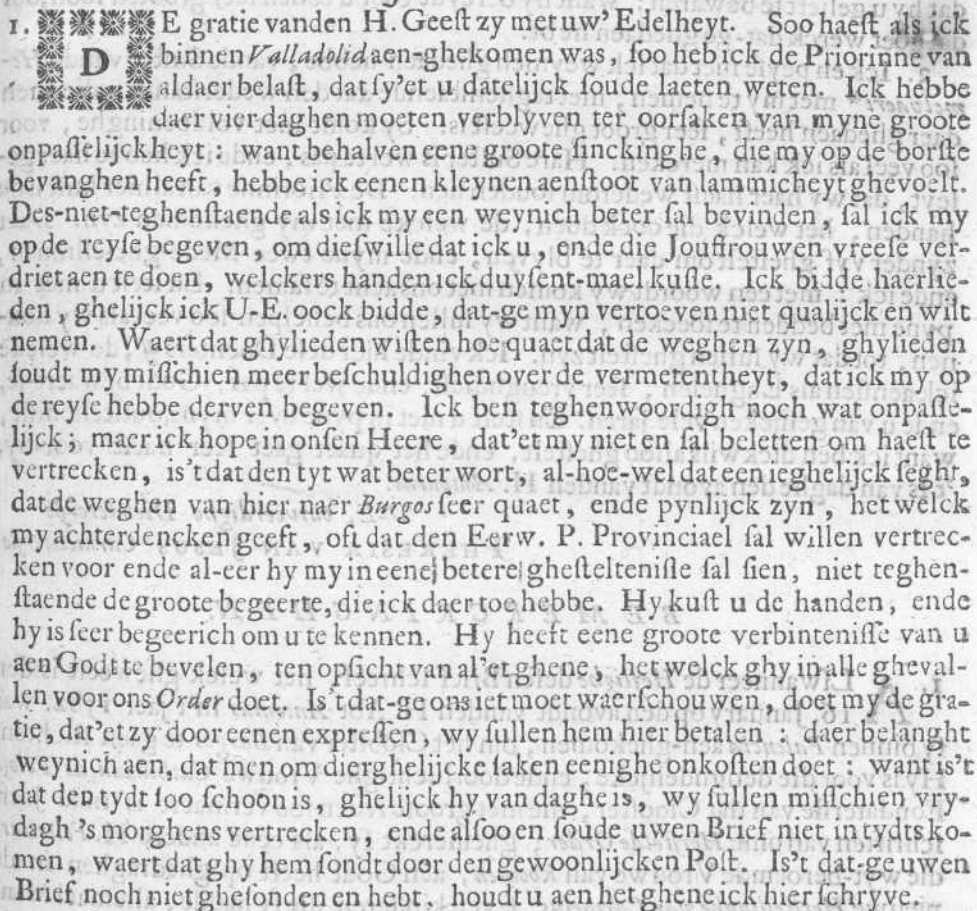 1. DE gratie vanden H. Geeſt zy met uw' Edelheyt. Soo haeſt als ick
binnen Valladolid aen-ghekomen was, ſoo heb ick de Priorinne van
aldaer belaſt, dat ſy'et u datelijck ſoude laeten weten. Ick hebbe
daer vier daghen moeten verblyven ter oorſaken van myne groote
onpaſſelijckheyt: want behalven eene groote ſinckinghe, die my op de borſte
bevanghen heeft, hebbe ick eenen kleynen aenſtoot van lammicheyt ghevoelt.
Des-niet-teghenſtaende als ick my een weynich beter ſal bevinden, ſal ick my
op de reyſe begeven, om dieſwille dat ick u, ende die Jouffrouwen vreeſe ver-
driet aen te doen, welckers handen ick duyſent-mael kuſſe. Ick bidde haerlie-
den, ghelijck ick U-E. oock bidde, dat-ge myn vertoeven niet qualijck en wilt
nemen. Waert dat ghylieden wiſten hoe quaet dat de weghen zyn, ghylieden
ſoudt my miſſchien meer beſchuldighen over de vermetentheyt, dat ick my op
de reyſe hebbe derven begeven. Ick ben teghenwoordigh noch wat onpaſſe-
lijck; maer ick hope in onſen Heere, dat'et my niet en ſal beletten om haeſt te
vertrecken, is't dat den tyt wat beter wort, al-hoe-wel dat een ieghelijck ſeght,
dat de weghen van hier naer Burgos ſeer quaet, ende pynlijck zyn, het welck
my achterdencken geeft, oft dat den Eerw. P. Provinciael ſal willen vertrec-
ken voor ende al-eer hy my in eene betere gheſtelteniſſe ſal ſien, niet teghen-
ſtaende de groote begeerte, die ick daer toe hebbe. Hy kuſt u de handen, ende
hy is ſeer begeerich om u te kennen. Hy heeft eene groote verbinteniſſe van u
aen Godt te bevelen, ten opſicht van al'et ghene, het welck ghy in alle gheval-
len voor ons Order doet. Is't dat-ge ons iet moet waerſchouwen, doet my de gra-
tie, dat'et zy door eenen expreſſen, wy ſullen hem hier betalen: daer belanght
weynich aen, dat men om dierghelijcke ſaken eenighe onkoſten doet: want is't
dat den tydt ſoo ſchoon is, ghelijck hy van daghe is, wy ſullen miſſchien vry-
dagh 's morghens vertrecken, ende alſoo en ſoude uwen Brief niet in tydts ko-
men, waert dat ghy hem ſondt door den gewoonlijcken Poſt. Is't dat-ge uwen
Brief noch niet gheſonden en hebt, houdt u aen het ghene ick hier ſchryve.